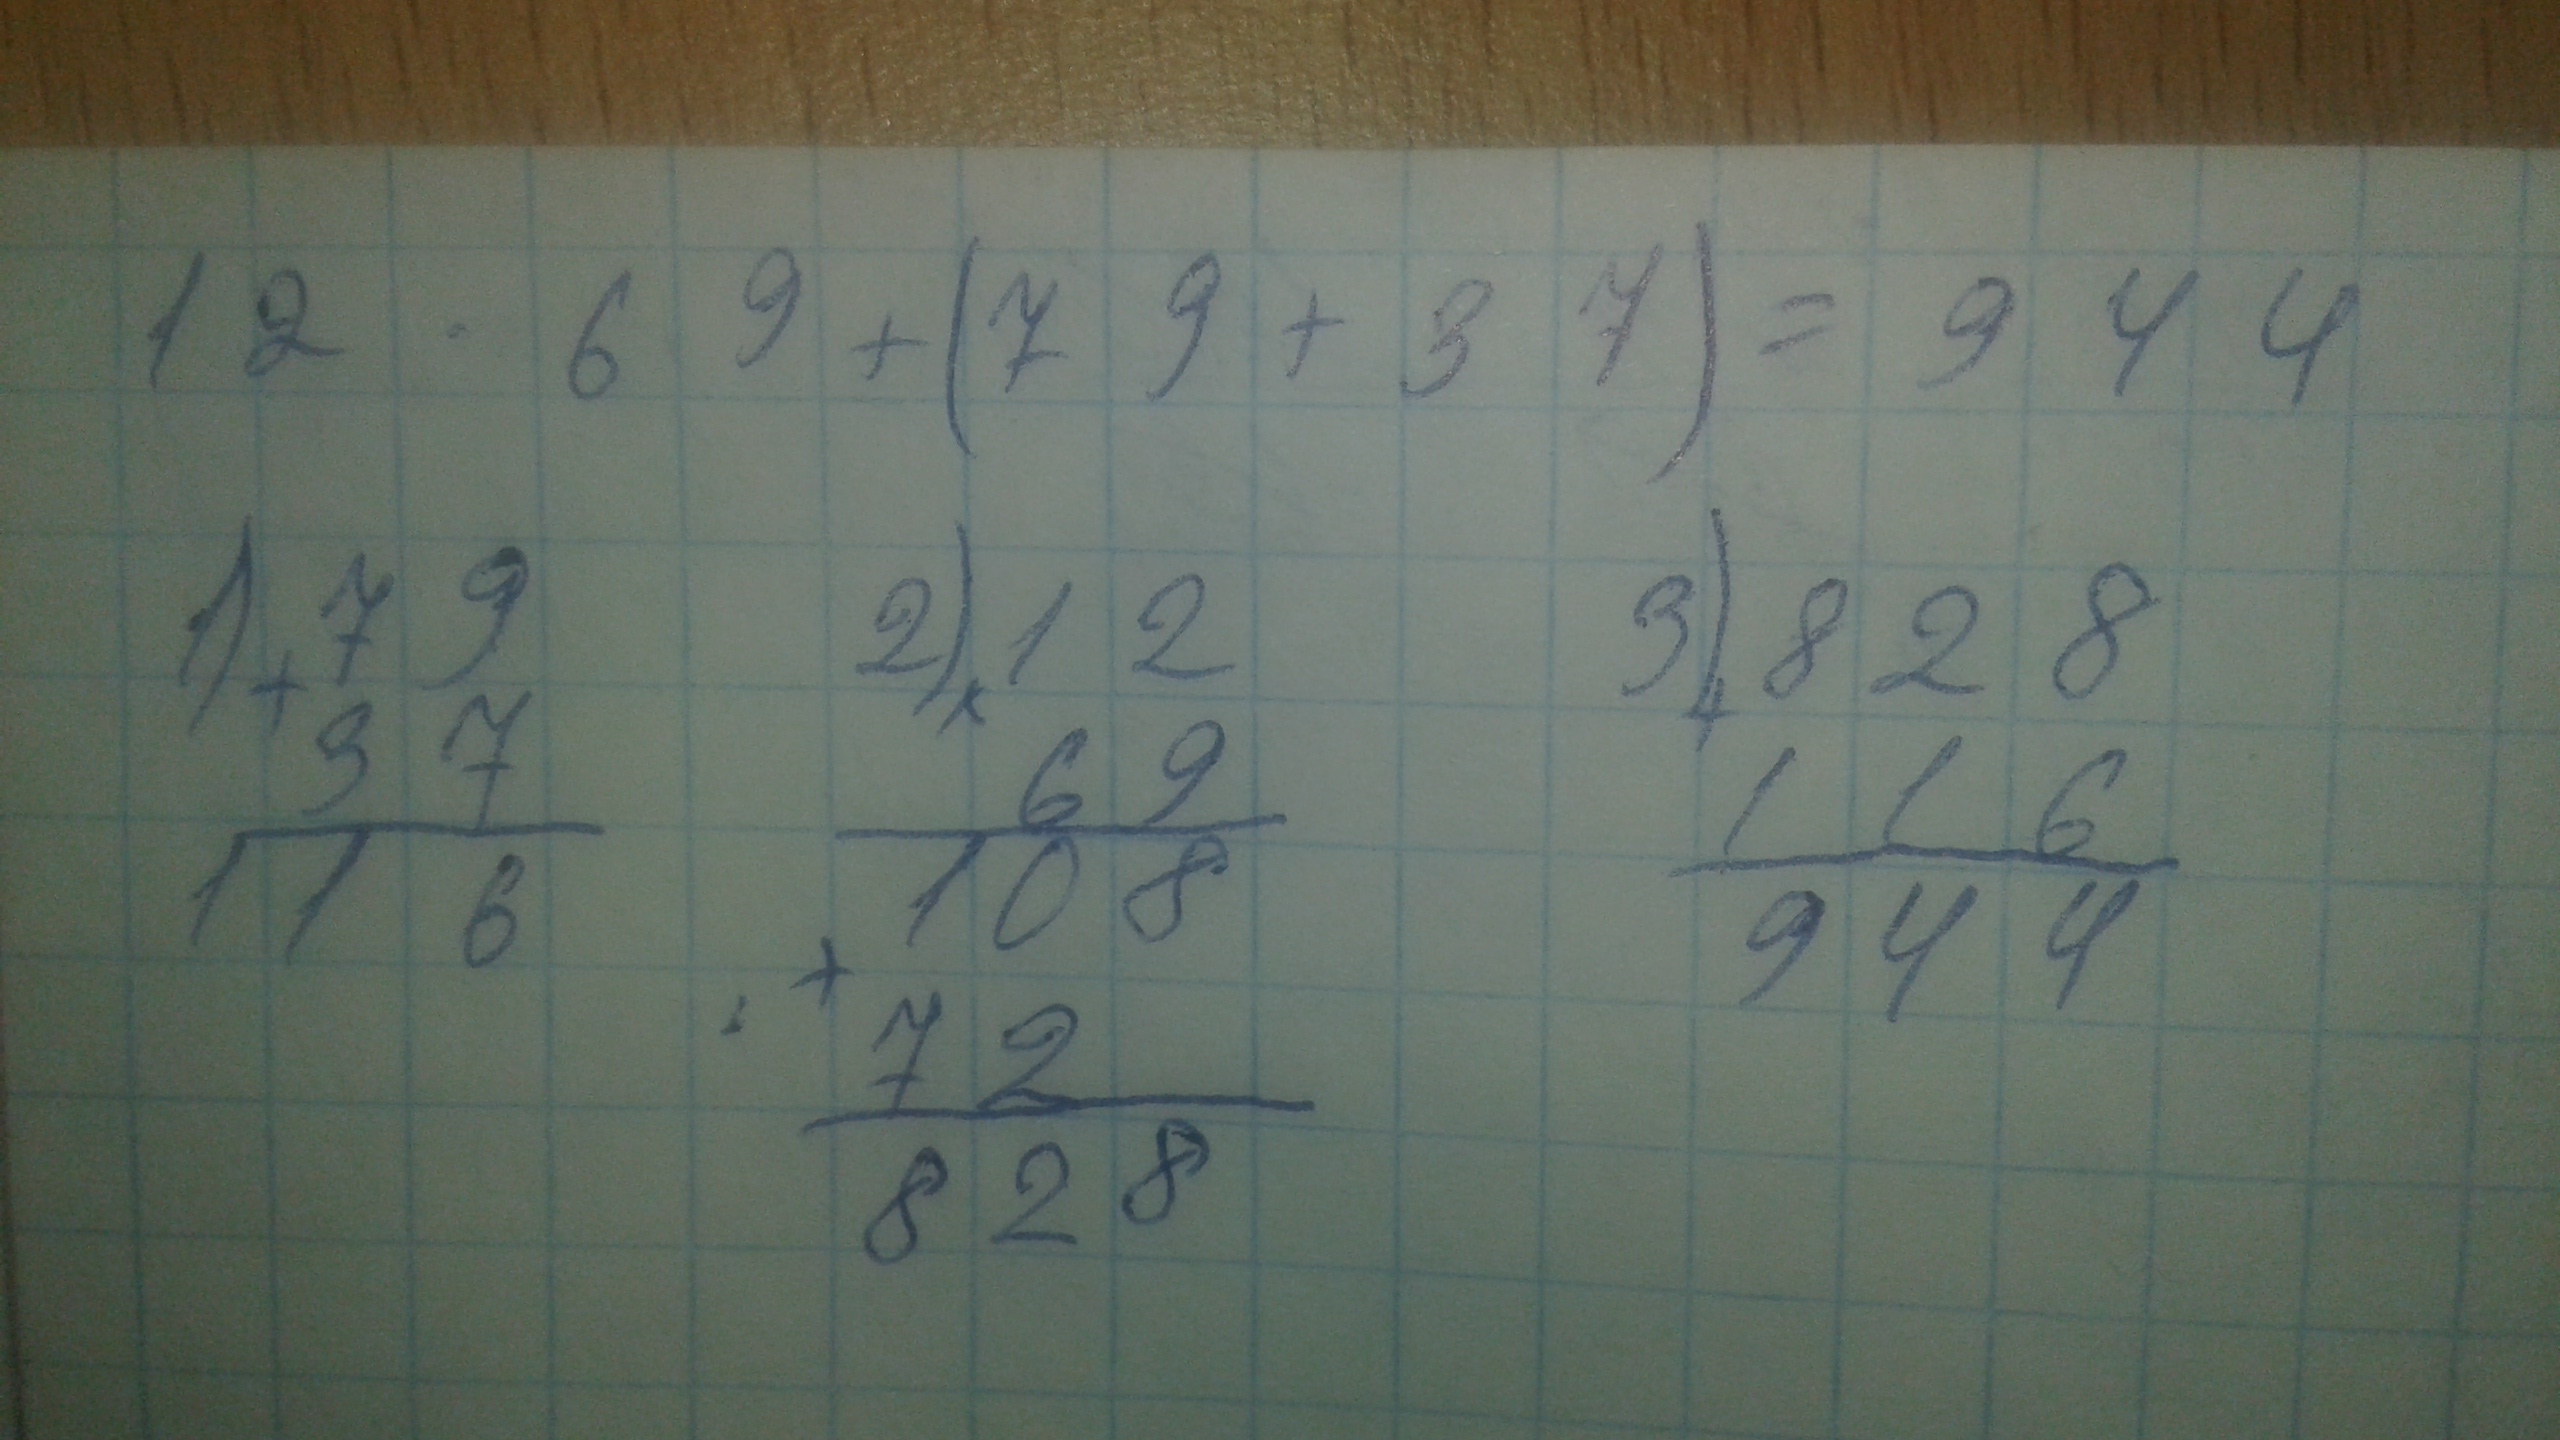 12 · 69 + (79 + 37) = 944
1) + 79
37
116
2) x 12
69
108
+
72
828
3) + 828
116
944